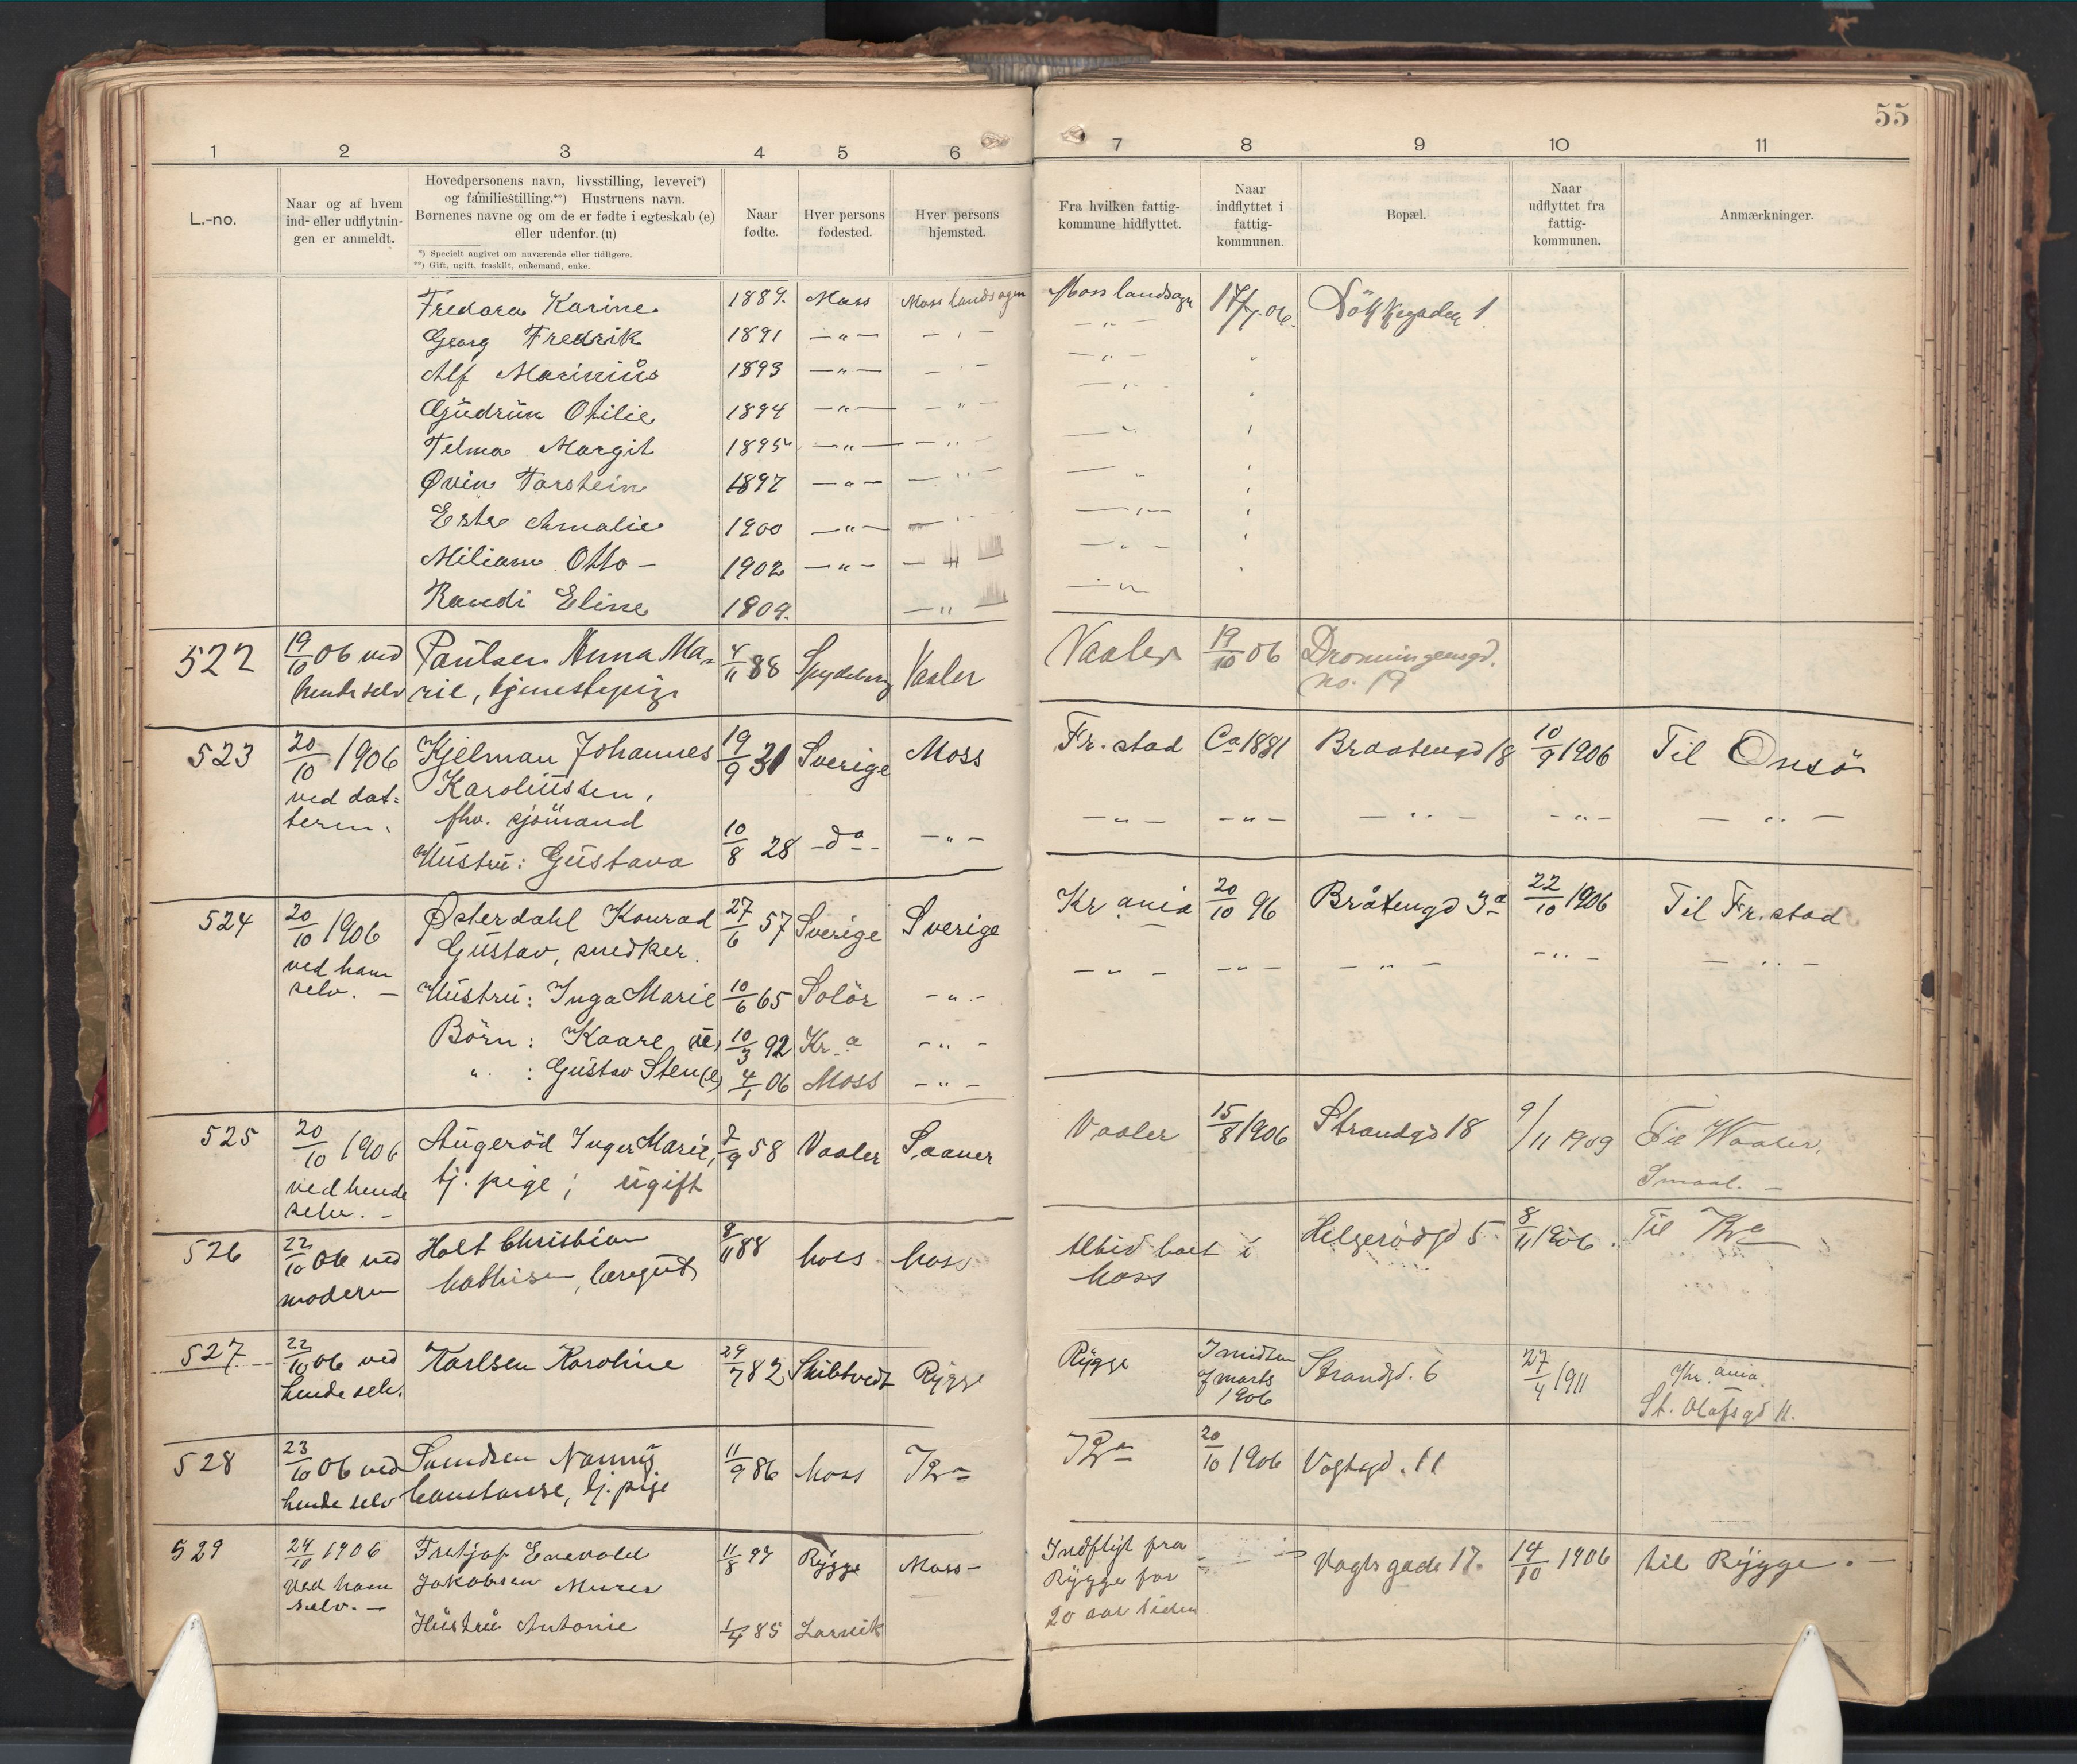 55
1 2 3 4 5 6 7 8 9 10 11
L.-no.
Naar og af hvem
ind- eller udflytnin-
gen er anmeldt.
Hovedpersonens navn, livsstilling, levevei*)
og familiestilling.**) Hustruens navn.
Børnenes navne og om de er fødte i egteskab (e)
eller udenfor. (u)
*) Specielt angivet om nuværende eller tidligere.
**) Gift, ugift, fraskilt, enkemand, enke.
Naar
fødte.
Hver persons
fødested.
Hver persons
hjemsted.
Fra hvilken fattig-
kommune hidflyttet.
Naar
indflyttet i
fattig-
kommunen.
Bopæl.
Naar
udflyttet fra
fattig-
kommunen.
Anmærkninger.
Fredara Karine 1889. Moss Moss landsogn Moss landsogn 17/7 06. 1
Georg Fredrik 1891 — " —
Alf Marinius 1893 — " —
Gudrun Otilie 1894 — " — — " —
Telma Margit 1895 — " — — " —
Øvin Torstein 1897 — " — — " —
Ester Amalie 1900 — " —
Miliam Otto — 1902 — " —
Randi Eline 1909. — "
522 19/10 06 ved Paulsen Anna Ma- 4/11 88 Spydeberg Vaaler Vaaler 19/10 06 Dronningensgd.
hende selv rie, tjenestepige no. 19
523 20/10 1906 Kjelman Johannes 19/9 31 Sverige Moss Fr.stad Ca 1881 Braatengd 18 10/9 1906 Til Onsö
ved dat= Karoliussen,
teren. fhv. sjömand — " — — " — — " — — " — — " —
Hustru: Gustava 10/8 28 — do — — " —
524 20/10 1906 Østerdahl Konrad 27/6 57 Sverige Sverige Kr.ania 20/10 96 Bråtengd 3a 22/10 1906 Til Fr.stad
ved ham Gustav, snedker. — " — — " — — " — — " — — " —
selv. — Hustru: Inga Marie 10/6 65 Solör — " —
Börn: Kaare (e) 10/3 92 Kr.a — " —
" : Gustav Sten (e) 4/1 06 Moss — " —
525 20/10 1906 Augeröd Inger Marie, 9/9 58 Vaaler Saaner Vaaler 15/8 1906 Strandgd 18 9/11 1909 Til Waaler.
ved hende tj. pige; ugift Smaal. —
selv. —
526 22/10 06 ved Holt Christian 8/11 88 Moss Moss Altid boet i Helgerödgd 5 8/11 1906. Til Kra
moderen Mathisen, læregut Moss
527 22/10 06 ved Karlsen Karoline 29/7 82 Skibtvedt Rygge Rygge I midten Strandgd. 6 27/4 1911 Kr.ania.
hende selv. af marts St. Olafsgd 11.
1906
528 23/10 06 ved Svendsen Nanny 11/9 86 Moss Kra Kra 20/10 1906 Vogtsgd. 11
hende selv Constanse, tj. pige
529 24/10 1906 Fritjof Enevold 11/8 97 Rygge Moss — Indflyt fra Vogts gade 17. 14/10 1906 til Rygge. —
ved ham Jakobsen Murer Rygge for
selv. — 20 aar siden
Hustru Antonie 1/4 85 Larvik